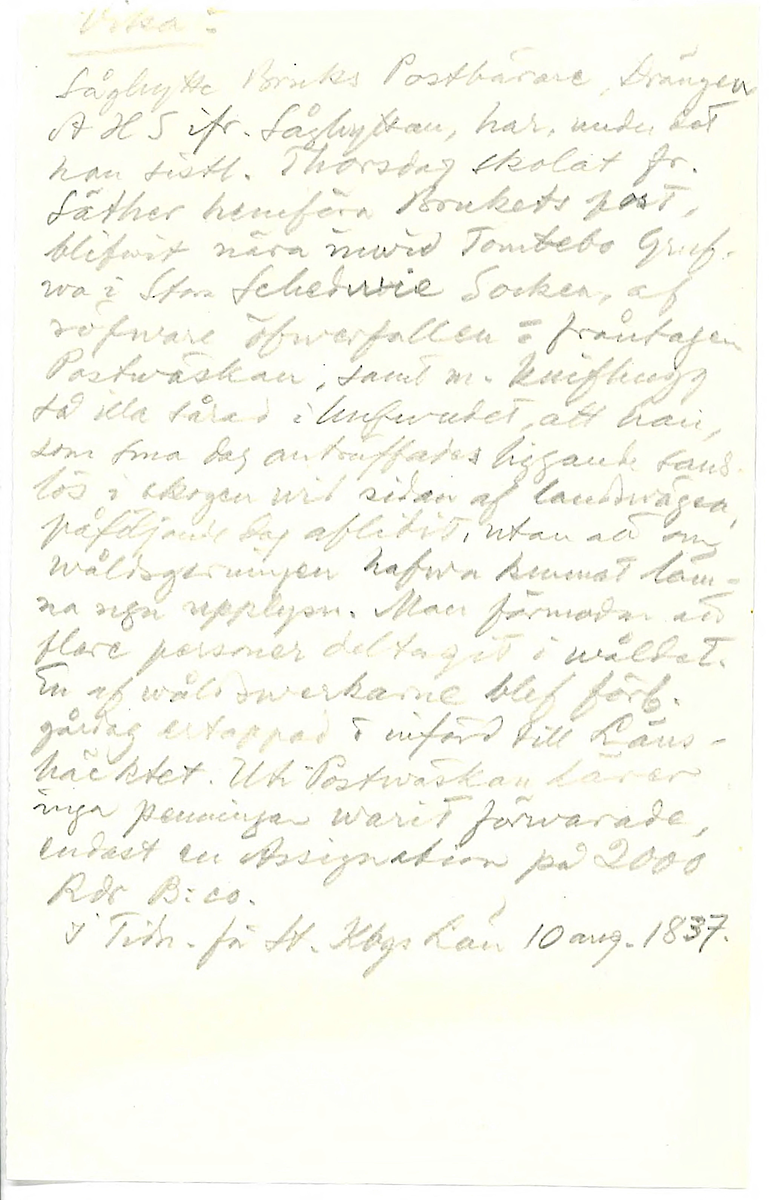 Vika:
Såghytte Bruks Postbärare, Drängen
A H S ifr. Såghyttan, har, under det
han sistl. Thorsdag skolat fr.
Säther hemföra Brukets post,
blifwit nära inwid Tomtebo Gruf-
wa i Stora Schedwie Socken, af
röfware öfwerfallen o fråntagen
Postwäskan, samt m. knifhugg
så illa sårad i hufwudet, att han,
som sma dag anträffades liggande sans-
lös i skogen wid sidan af landswägen,
påföljande dag aflidit, utan att om
wåldsgerningen hafwa kunnat läm-
na ngn upplysn. Man förmodar att
flere personer deltagit i wåldet.
En af wåldswerkarne blef förl.
gårdag ertappad o införd till Läns-
häcktet. Uti Postwäskan lärer
inga penningar warit förwarade,
endast en Assignation på 2000
Rdr B:co.
I Tidn. för St. Kbgs Län 10 aug. 1837.